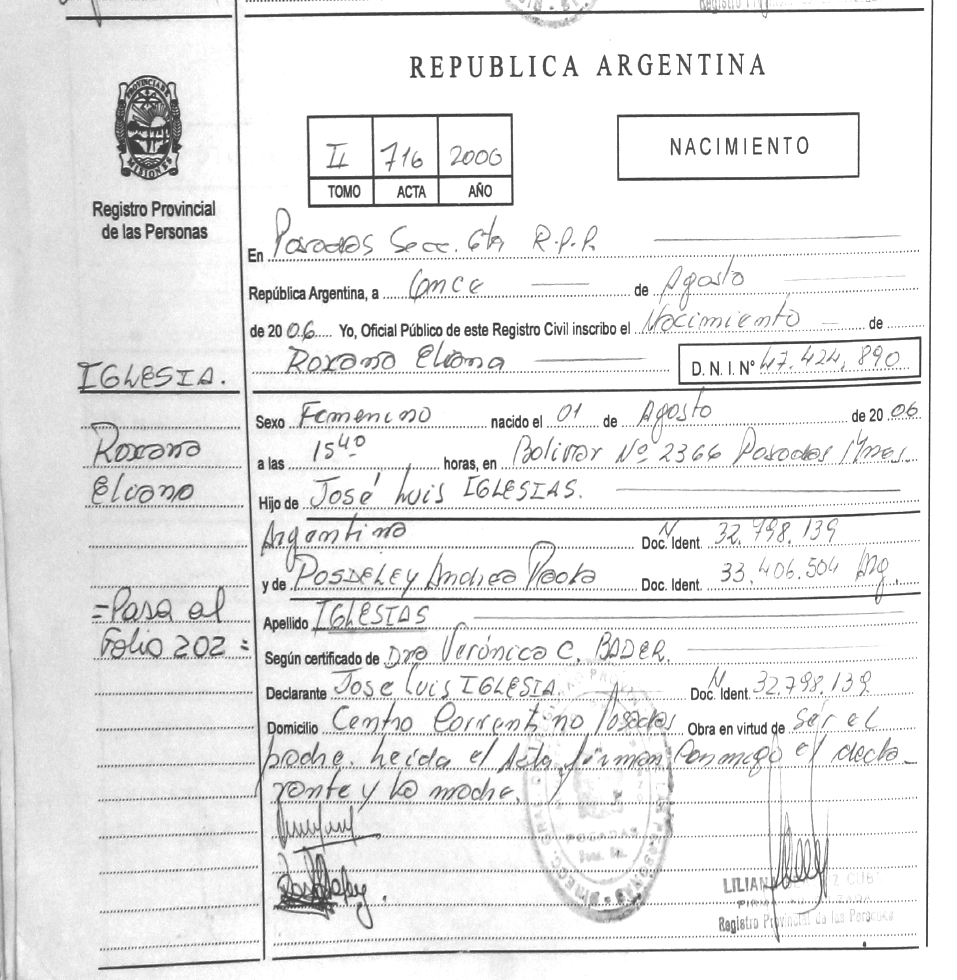 REPUBLICA ARGENTINA
II 716 2006
TOMO ACTA AÑO
NACIMIENTO
PROVINCIA DE MISIONES
Registro Provincial
de las Personas
En Posadas Secc. 6ta R.P.P.
República Argentina, a once de Agosto
de 2006 Yo, Oficial Público de este Registro Civil inscribo el Nacimiento de
Roxana Eliana D.N.I. Nº 47.424.890
IGLESIA.
Roxana
Eliana
=Pasa al
Folio 202=
Sexo Femenino nacido el 01 de Agosto de 2006
a las 15 40 horas, en Bolivar Nº 2366 Posadas Mnes.
Hijo de José Luis IGLESIAS.
Argentino Doc. Ident. 32.798.139
y de POSDELEY Andrea Paola Doc. Ident. 33.406.504 Arg.
Apellido IGLESIAS
Según certificado de Dra Verónica C. BADER.
Declarante José Luis IGLESIA. Doc. Ident. 32.798.139
Domicilio Centro Correntino Posadas Obra en virtud de ser el
padre. Leida el Acta, firman conmigo el decla
rante y la madre.
POSADAS
LILIANA
Registro Provincial de las Personas